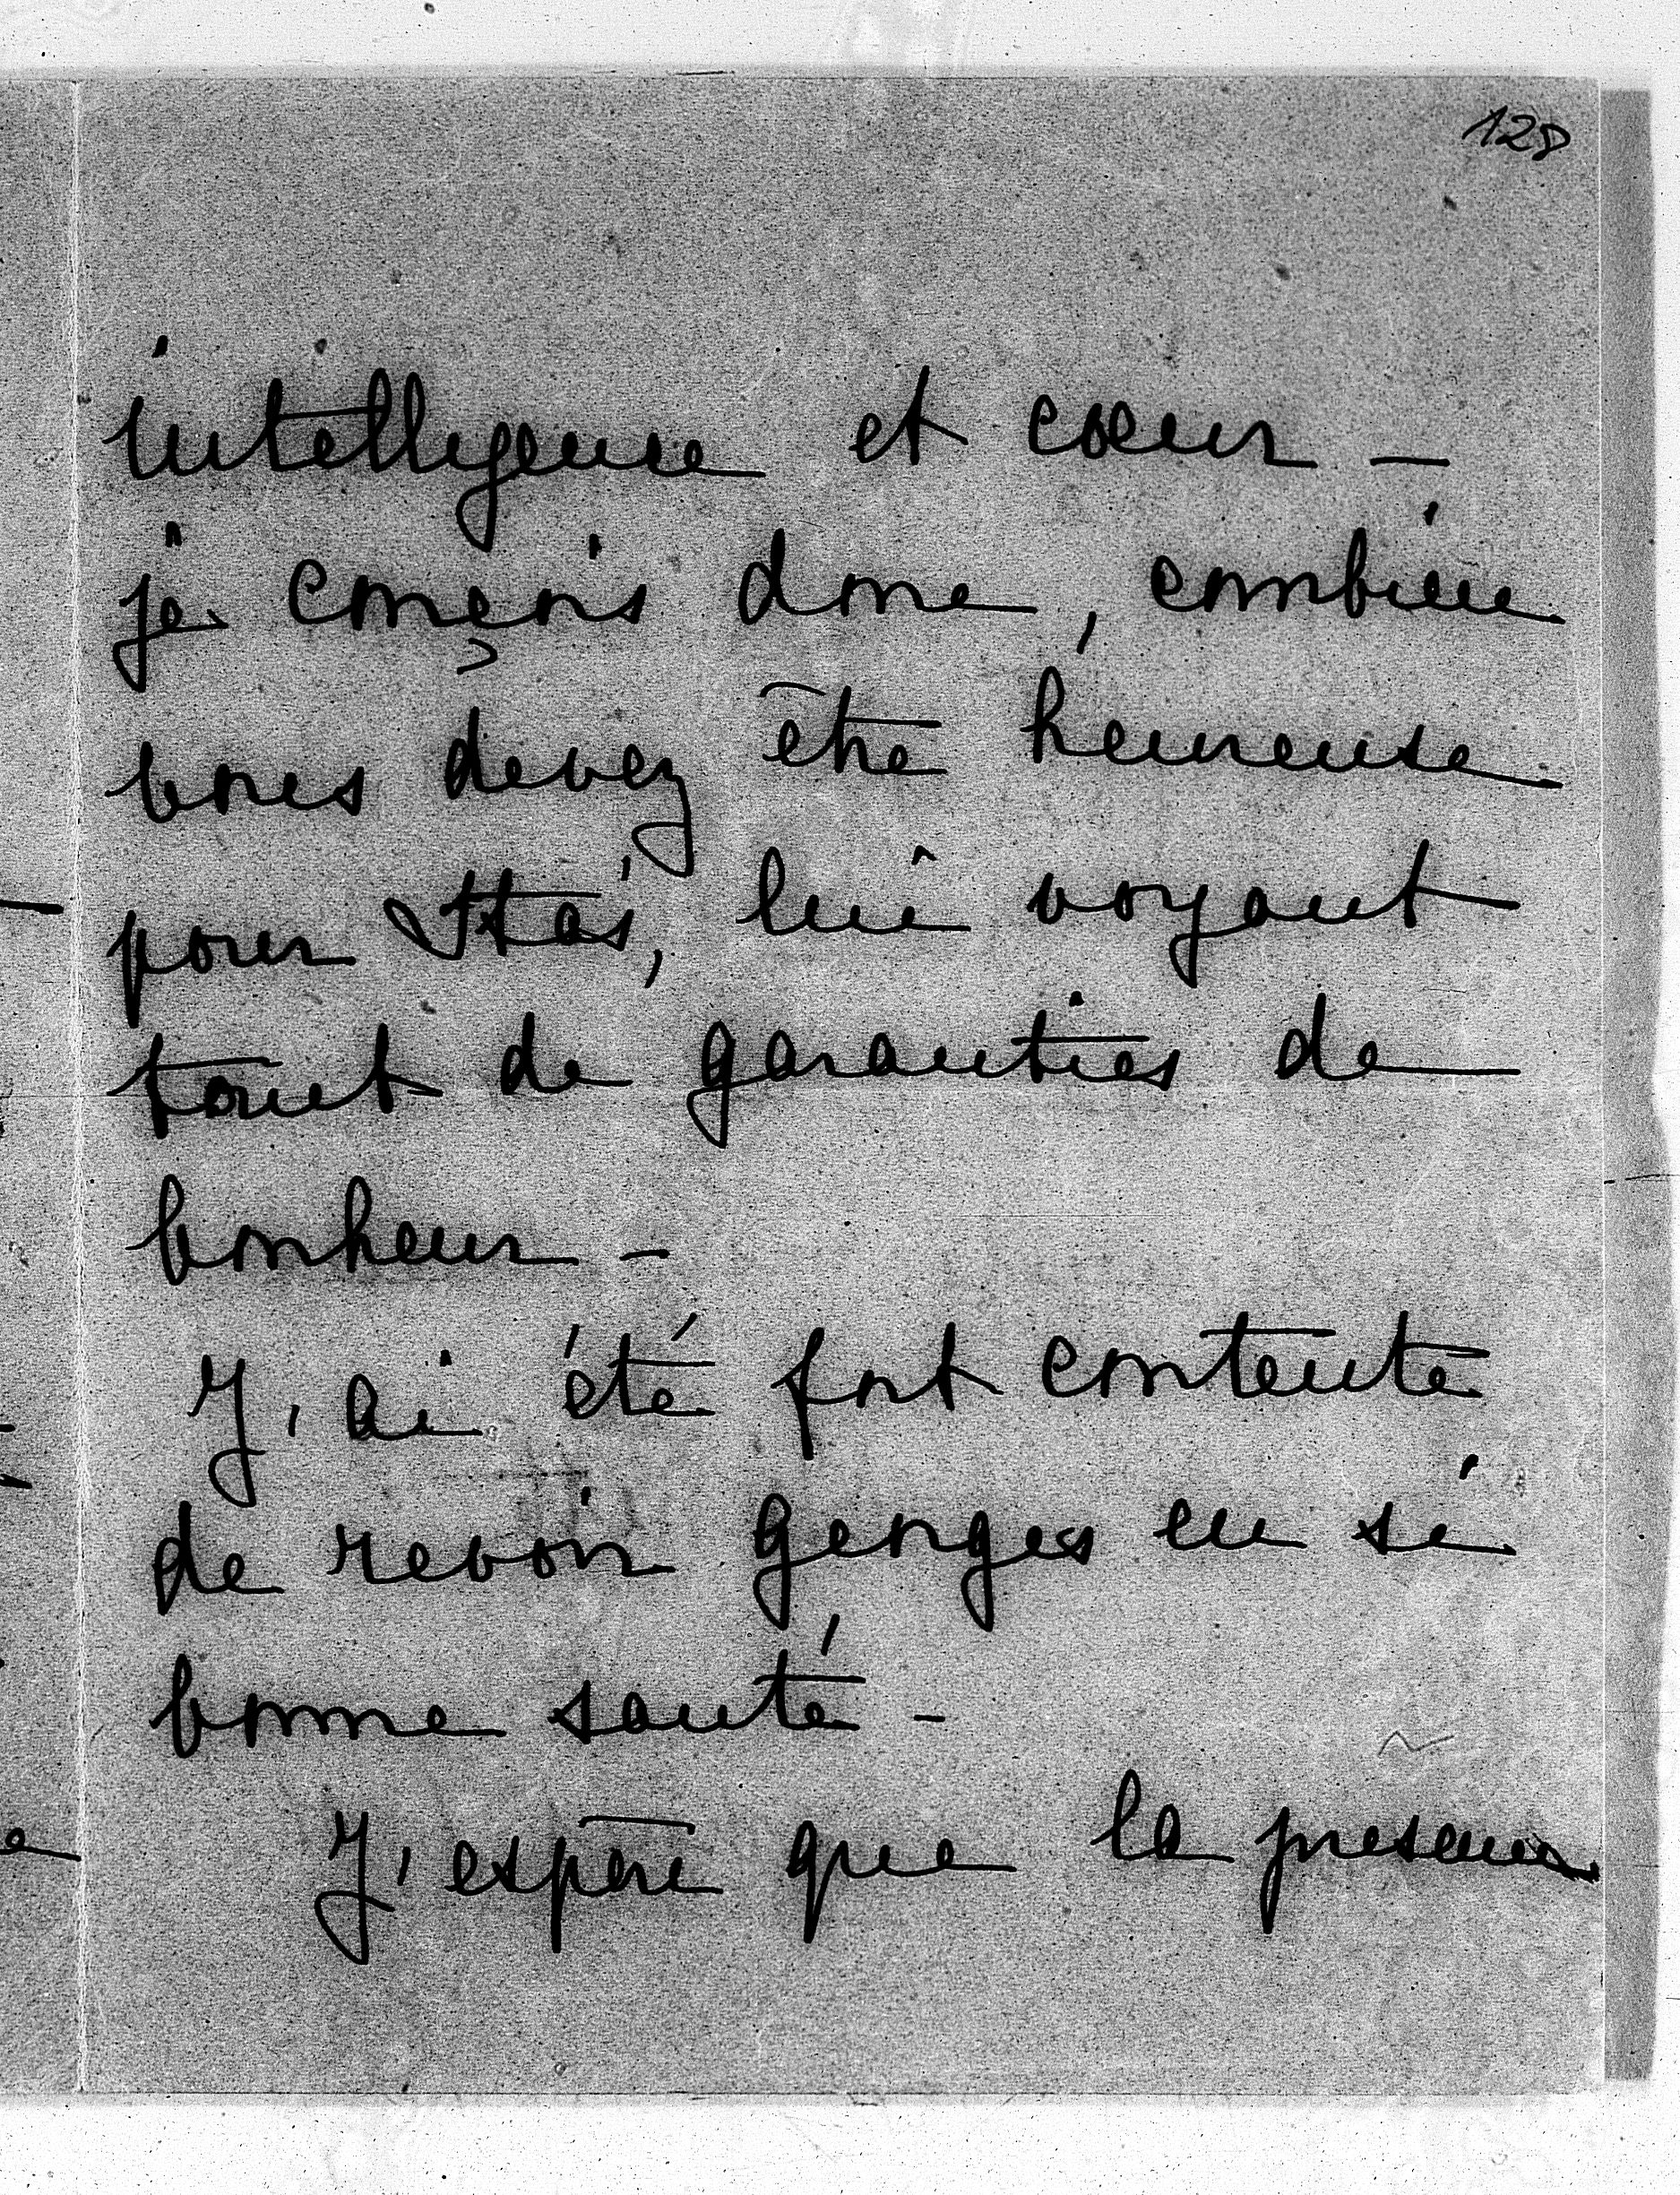 128
intelligence et cœur —
je conçois donc, combien
vous devez être heureuse
pour Staś, lui voyant
tout de garanties de
bonheur —
J'ai été fort contente
de revoir Georges en si
bonne santé —
J'espère que la presence